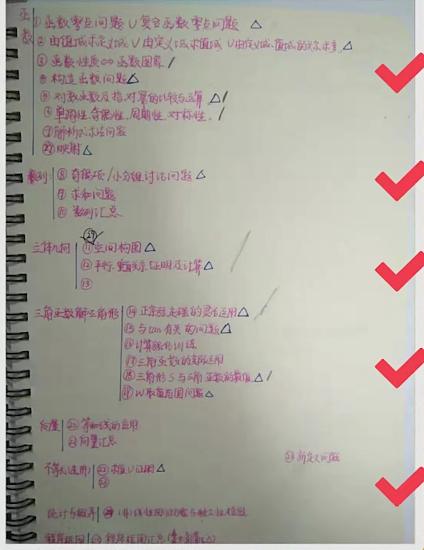 函数
① 函数零点问题 ∪ 复合函数零点问题 △
② 由值域求定义域 ∪ 由定义域求值域 ∪ 由定义域、值域的关系求 △
③ 函数性质 ⇔ 函数图象 /
④ 构造函数问题 △
⑤ 对数函数及指、对幂的比较与运算 △ /
⑥ 单调性、奇偶性、周期性、对称性 /
⑦ 解析式求法
映射 △
数列
⑧ 奇偶项/分组讨论问题 △
⑨ 求和问题
⑩ 数列汇总
立体几何
⑪ 空间构图 △
⑫ 平行、垂直关系证明及计算 △
⑬
三角函数解三角形
⑭ 正余弦定理的灵活运用 △ /
⑮ 与tan有关的问题 △
⑯ 计算强化训练
⑰ 三角函数的实际运用
⑱ 三角形S与三角函数的最值 △ /
⑲ W取值范围问题 △
向量
⑳ 等和线的应用
㉑ 向量汇总
新定义问题
不等式(运用)
求值∪证明 △
统计与概率
程序框图